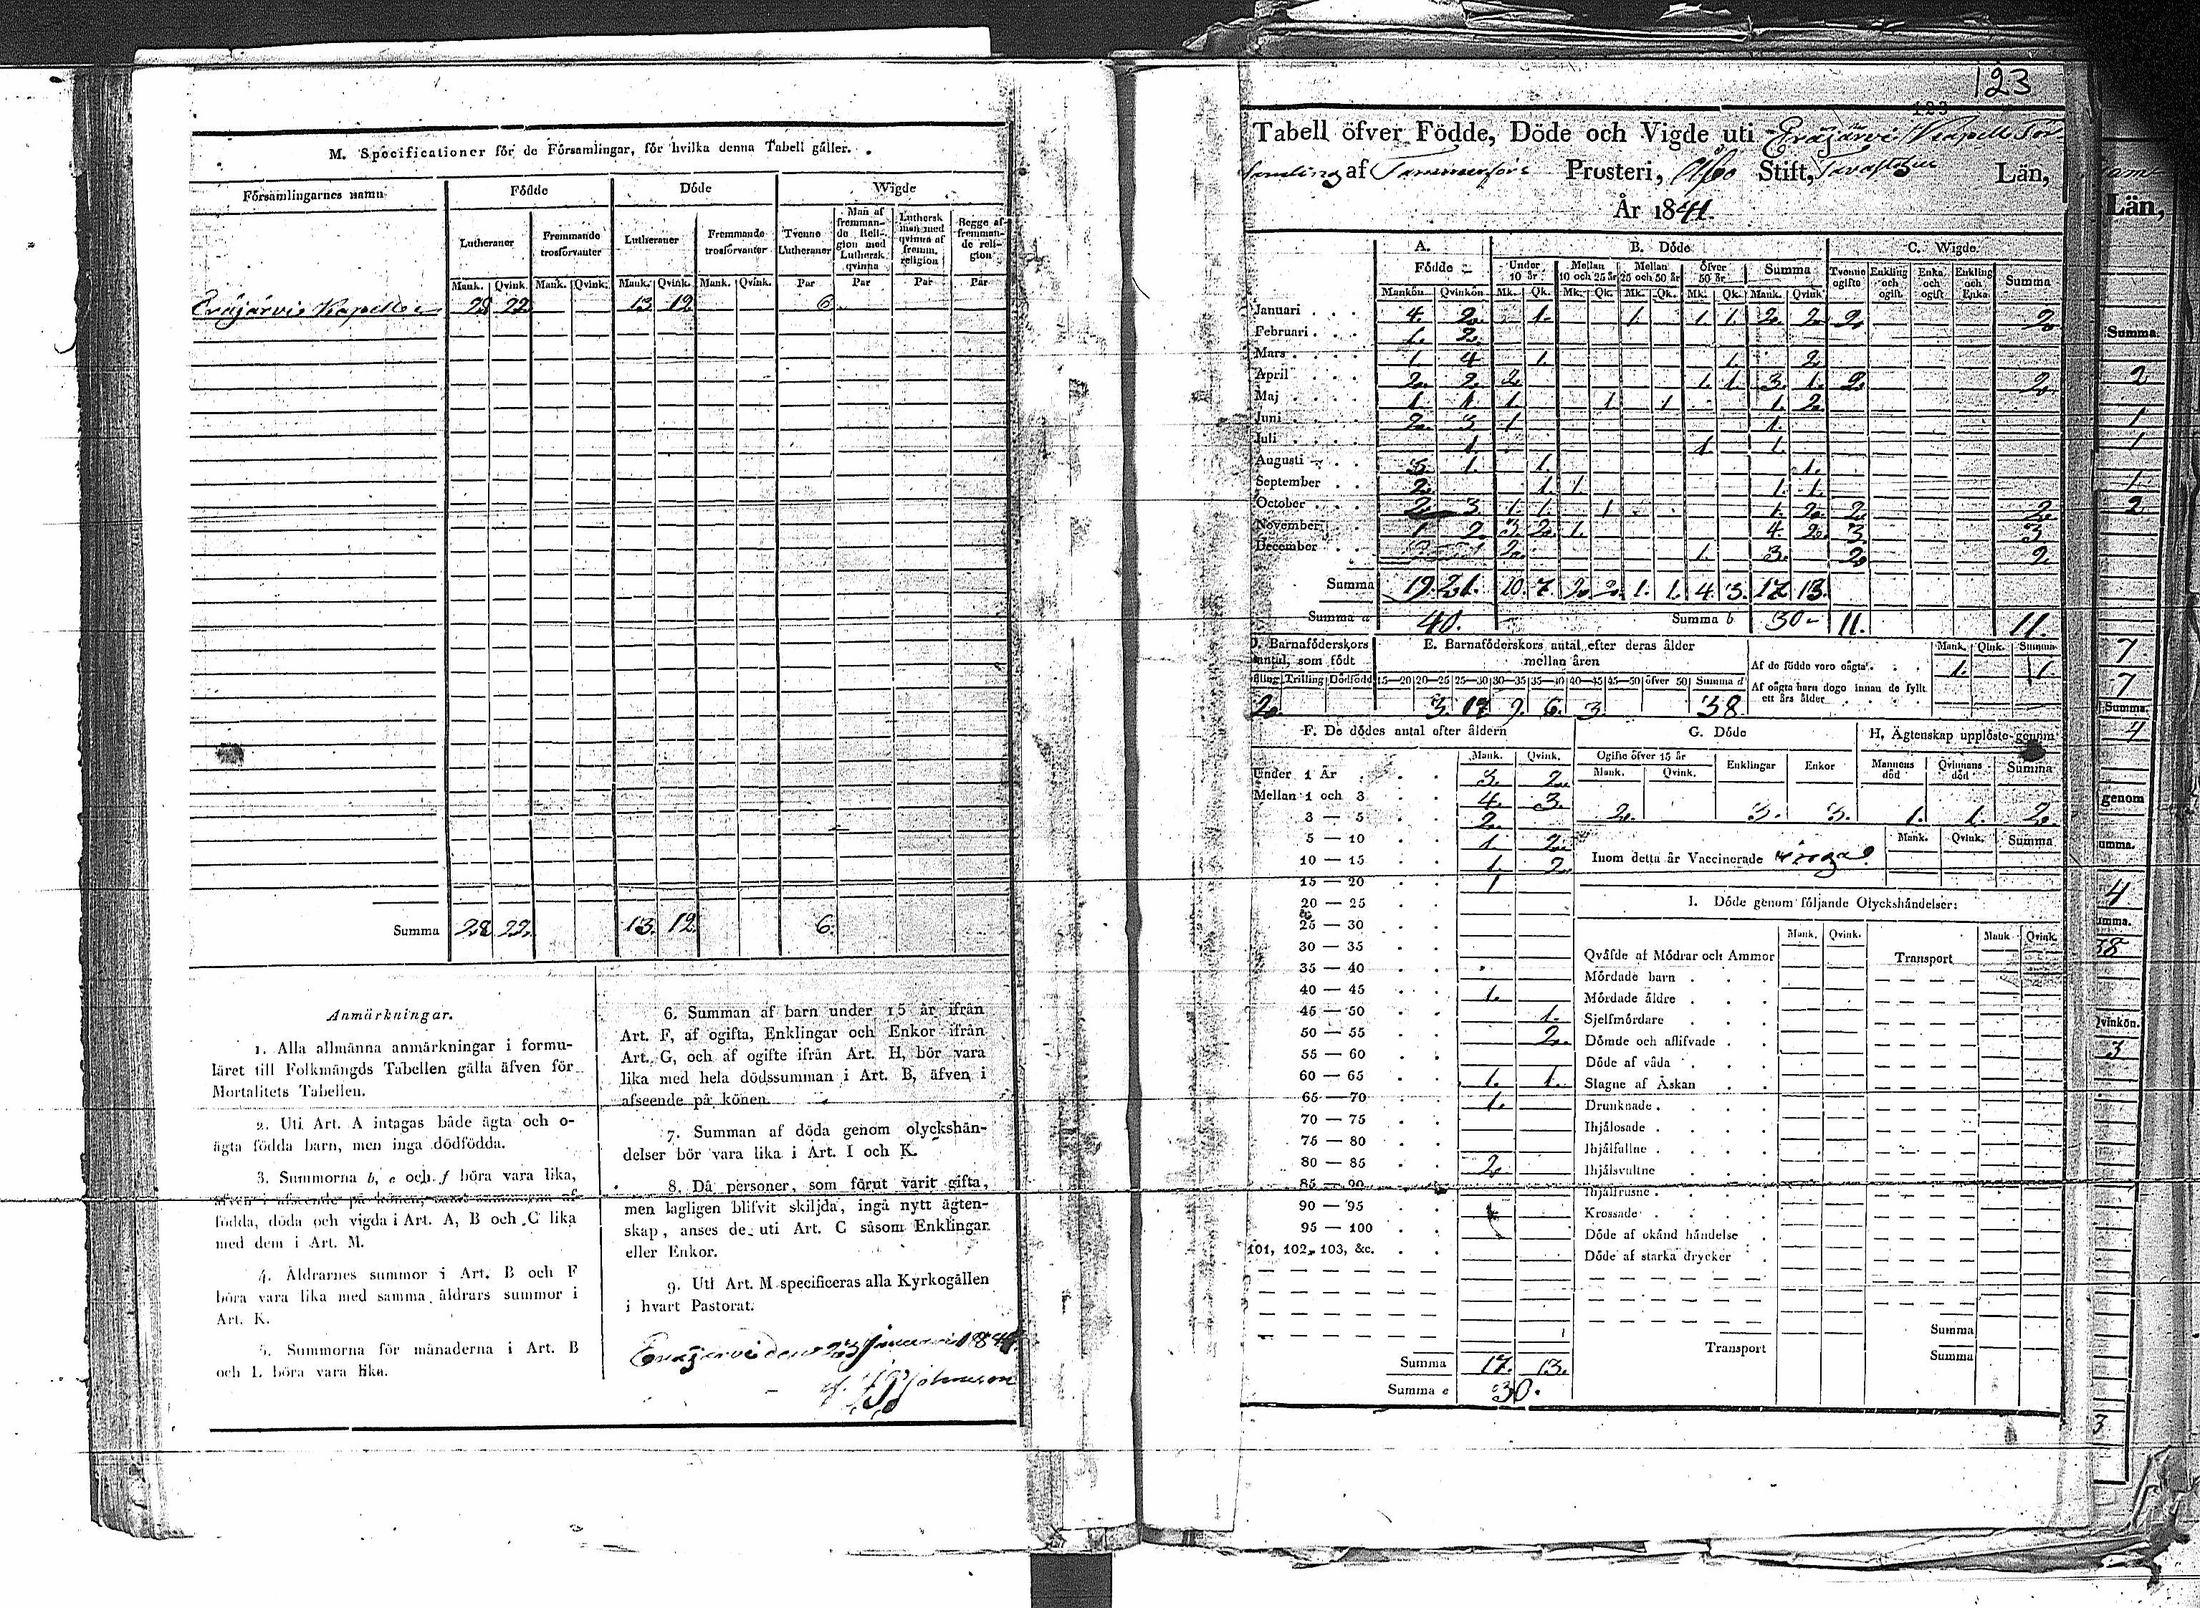 M. Specificationer för de Församlingar, för hvilka denna Tabell gäller.
Församlingarnes namn
Födde
Döde
Wigde
Lutheraner
Fremmande trosförvanter
Lutheraner
Fremmande trosförvanter
Tvenne Lutheraner
Man af fremmande Religion med Luthersk qvinna
Luthersk man med qvinna af fremm. religion
Begge af fremmande religion
Mank. Qvink. Mank. Qvink. Mank. Qvink. Mank. Qvink. Par Par Par Par
Eräjärvi Kapell 28 22 13 12 6
Summa 28 22 13 12 6
Anmärkningar.
1. Alla allmänna anmärkningar i formu-
läret till Folkmängds Tabellen gälla äfven för
Mortalitets Tabellen.
2. Uti Art. A intagas både ägta och o-
ägta födda barn, men inga dödfödda.
3. Summorna b, e och f böra vara lika,
äfven i afseende på könen, samt summorna af
födda, döda och vigda i Art. A, B och C lika
med dem i Art. M.
4. Åldrarnes summor i Art. B och F
böra vara lika med samma åldrars summor i
Art. K.
5. Summorna för månaderna i Art. B
och L böra vara lika.
6. Summan af barn under 15 år ifrån
Art. F, af ogifta, Enklingar och Enkor ifrån
Art. G, och af ogifte ifrån Art. H, bör vara
lika med hela dödssumman i Art. B, äfven i
afseende på könen.
7. Summan af döda genom olyckshän-
delser bör vara lika i Art. I och K.
8. Då personer, som förut varit gifta,
men lagligen blifvit skiljda, ingå nytt ägten-
skap, anses de uti Art. C såsom Enklingar
eller Enkor.
9. Uti Art. M specificeras alla Kyrkogällen
i hvart Pastorat.
Eräjärvi den 23 Januarii
123
123
Tabell öfver Födde, Döde och Vigde uti Eräjärvi Kapell För
samling af Tammerfors Prosteri, Åbo Stift, Tavastehus Län,
År 1841.
A. Födde
B. Döde
C. Wigde
Under 10 år Mellan 10 och 25 år Mellan 25 och 50 år Öfver 50 år Summa
Tvenne ogifte Enkling och ogift Enka och ogift Enkling och Enka Summa
Mankön Qvinkön Mk. Qk. Mk. Qk. Mk. Qk. Mk. Qk. Mank. Qvink.
Januari 4. 2. 1. 1. 1. 1. 2. 2. 2. 2.
Februari 1. 2.
Mars 1. 4 1. 1. 2.
April 2. 2. 2. 1. 1. 3. 1. 2. 2.
Maj 1. 1 1. 1. 1 1. 2.
Juni 2. 3 1 1.
Juli 1. 1. 1.
Augusti 3. 1. 1. 1.
September 2. 1. 1. 1. 1.
October 2. 3 1. 1. 1 1. 2. 2. 2.
November 1 2. 3. 2. 1. 4. 2. 3. 3.
December 2. 1. 3. 2. 2.
Summa 19. 21. 10. 7. 2. 2. 1. 1. 4. 3. 17. 13.
Summa a 40. Summa b 30 11. 11.
D. Barnaföderskors antal, som födt
E. Barnaföderskors antal efter deras ålder mellan åren
Trilling Dödfödd 15—20 20—25 25—30 30—35 35—40 40—45 45—50 öfver 50 Summa d
2. 3. 17. 9. 6. 3. 38.
Mank. Qink. Summa
Af de födde voro oägta 1. 1.
Af oägta barn dogo innan de fyllt
ett års ålder
F. De dödes antal efter åldern
Mank. Qvink.
Under 1 År 3. 2.
Mellan 1 och 3 4. 3.
3 — 5 2.
5 — 10 1 2.
10 — 15 1. 2.
15 — 20 1
20 — 25
25 — 30
30 — 35
35 — 40
40 — 45 1.
45 — 50 1.
50 — 55 2.
55 — 60
60 — 65 1. 1.
65 — 70 1.
70 — 75
75 — 80
80 — 85 2
85 — 90
90 — 95
95 — 100
101, 102, 103, &c.
Summa 17. 13.
Summa e 30.
G. Döde
Ogifte öfver 15 år Enklingar Enkor
Mank. Qvink.
2. 3. 3.
H. Ägtenskap upplöste genom
Mannens död Qvinnans död Summa
1. 1. 2.
Mank. Qvink. Summa
Inom detta år Vaccinerade inga.
I. Döde genom följande Olyckshändelser:
Mank. Qvink. Mank Qvink.
Qväfde af Mödrar och Ammor Transport
Mördade barn
Mördade äldre
Sjelfmördare
Dömde och aflifvade
Döde af våda
Slagne af Åskan
Drunknade
Ihjälosade
Ihjälfallne
Ihjälsvultne
Ihjälfrusne
Krossade
Döde af okänd händelse
Döde af starka drycker
Summa
Transport Summa
Län,
Summa
2
1
1
1
2
7
7
Summa.
4
genom
4
38
Qvinkön.
3
3